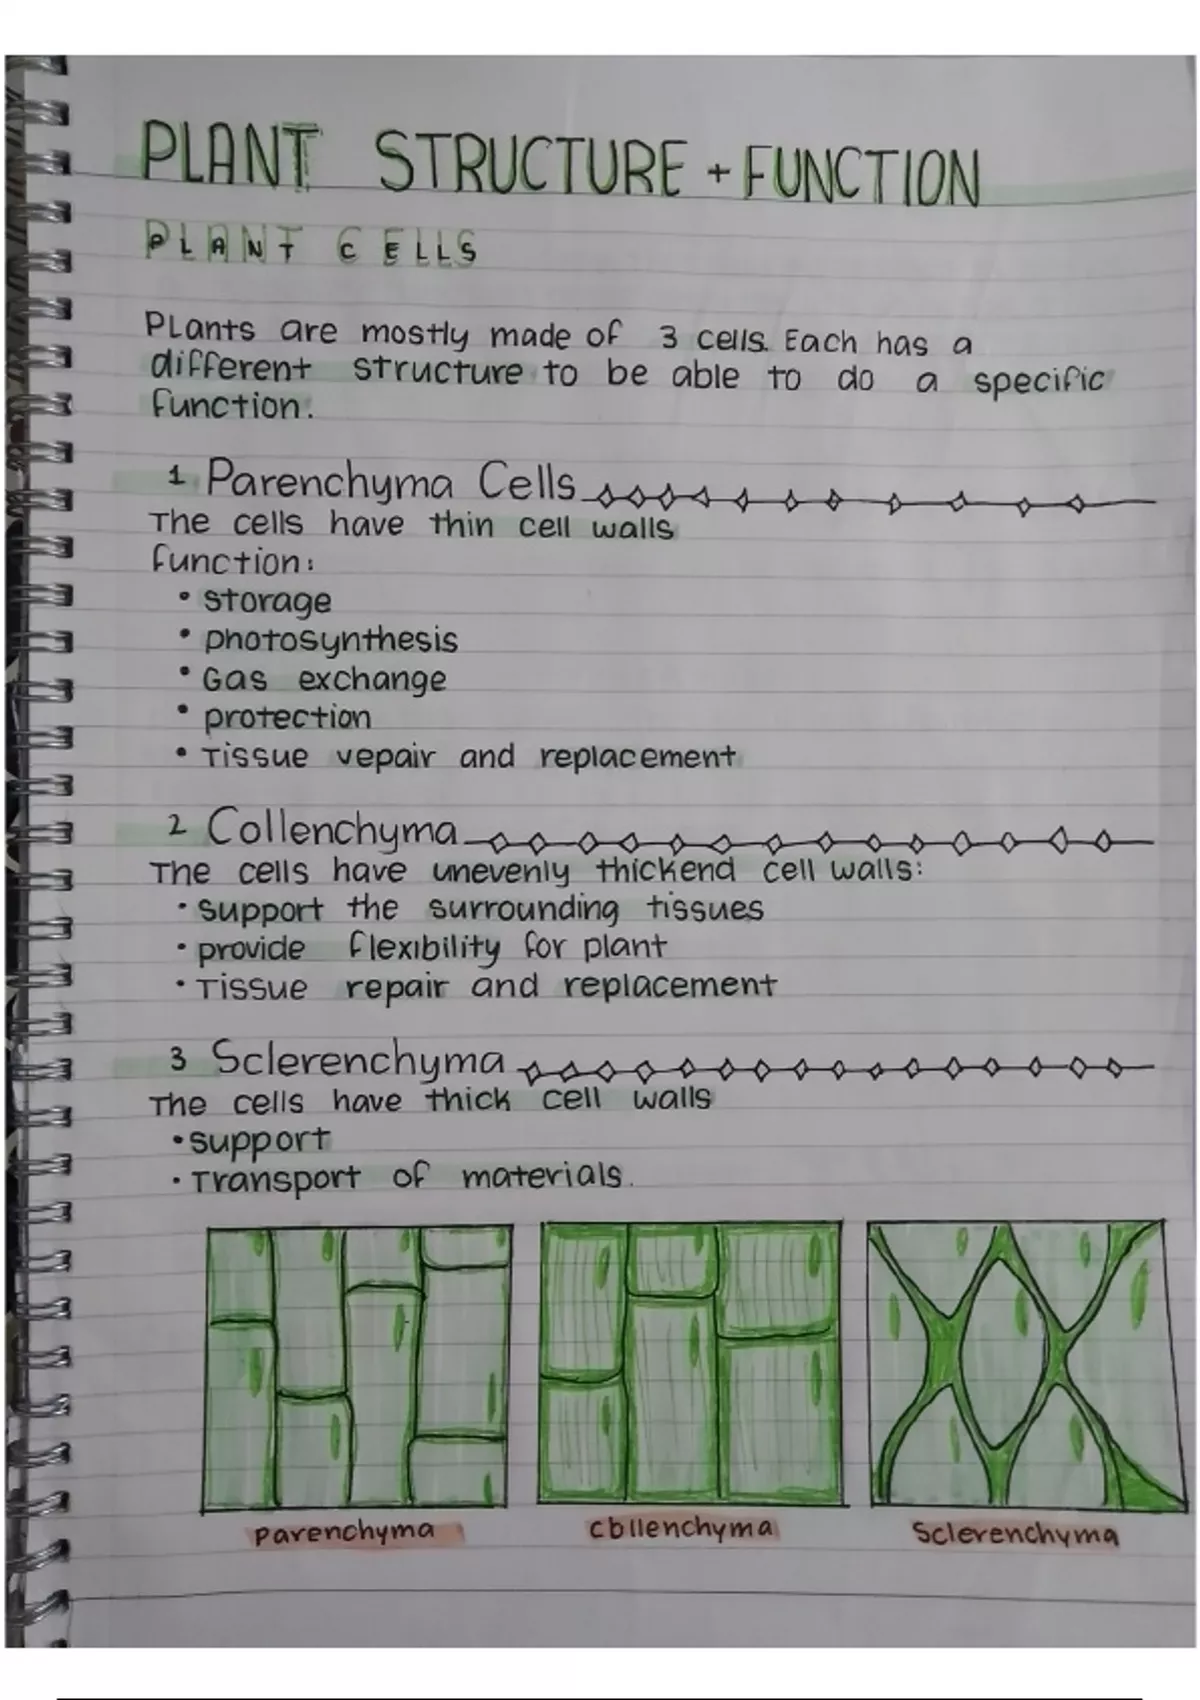 PLANT STRUCTURE + FUNCTION
PLANT CELLS
Plants are mostly made of 3 cells. Each has a
different structure to be able to do a specific
function.
1 Parenchyma Cells
The cells have thin cell walls
function:
• storage
• photosynthesis
• Gas exchange
• protection
• Tissue vepair and replacement
2 Collenchyma
The cells have unevenly thickend cell walls:
• support the surrounding tissues
• provide flexibility for plant
• Tissue repair and replacement
3 Sclerenchyma
The cells have thick cell walls
• support
• Transport of materials.
parenchyma collenchyma Sclerenchyma